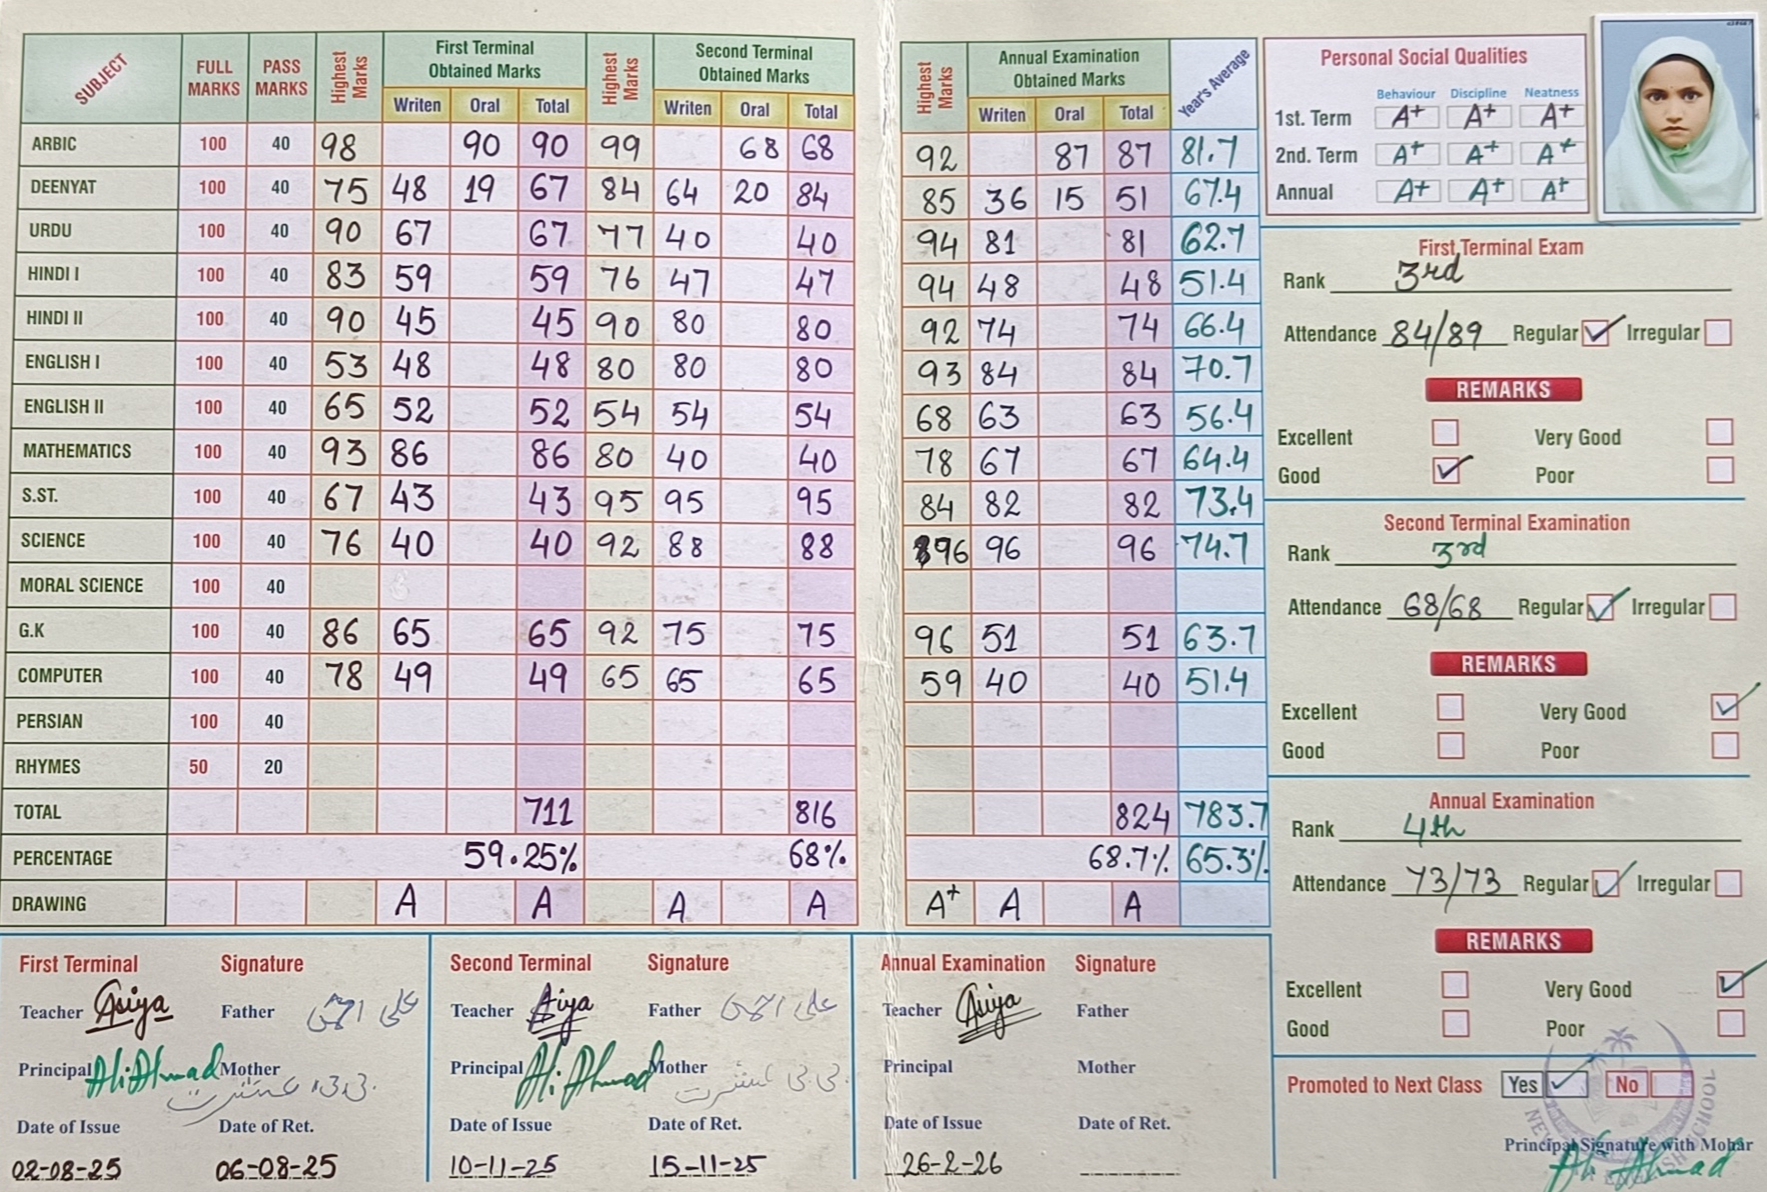 SUBJECT FULL MARKS PASS MARKS Highest Marks First Terminal Obtained Marks Highest Marks Second Terminal Obtained Marks Highest Marks Annual Examination Obtained Marks Year's Average
Writen Oral Total Writen Oral Total Writen Oral Total
ARBIC 100 40 98 90 90 99 68 68 92 87 87 81.7
DEENYAT 100 40 75 48 19 67 84 64 20 84 85 36 15 51 67.4
URDU 100 40 90 67 67 77 40 40 94 81 81 62.7
HINDI I 100 40 83 59 59 76 47 47 94 48 48 51.4
HINDI II 100 40 90 45 45 90 80 80 92 74 74 66.4
ENGLISH I 100 40 53 48 48 80 80 80 93 84 84 70.7
ENGLISH II 100 40 65 52 52 54 54 54 68 63 63 56.4
MATHEMATICS 100 40 93 86 86 80 40 40 78 67 67 64.4
S.ST. 100 40 67 43 43 95 95 95 84 82 82 73.4
SCIENCE 100 40 76 40 40 92 88 88 96 96 96 74.7
MORAL SCIENCE 100 40
G.K 100 40 86 65 65 92 75 75 96 51 51 63.7
COMPUTER 100 40 78 49 49 65 65 65 59 40 40 51.4
PERSIAN 100 40
RHYMES 50 20
TOTAL 711 816 824 783.7
PERCENTAGE 59.25% 68% 68.7% 65.3%
DRAWING A A A A A+ A A
Personal Social Qualities
Behaviour Discipline Neatness
1st. Term A+ A+ A+
2nd. Term A+ A+ A+
Annual A+ A+ A+
First Terminal Exam
Rank 3rd
Attendance 84/89 Regular Irregular
REMARKS
Excellent Very Good
Good Poor
Second Terminal Examination
Rank 3rd
Attendance 68/68 Regular Irregular
REMARKS
Excellent Very Good
Good Poor
Annual Examination
Rank 4th
Attendance 73/73 Regular Irregular
REMARKS
Excellent Very Good
Good Poor
Promoted to Next Class Yes No
Principal Signature with Mohar
Ali Ahmad
First Terminal Signature
Teacher Asiya Father
Principal Ali Ahmad Mother
Date of Issue Date of Ret.
02-08-25 06-08-25
Second Terminal Signature
Teacher Asiya Father
Principal Ali Ahmad Mother
Date of Issue Date of Ret.
10-11-25 15-11-25
Annual Examination Signature
Teacher Asiya Father
Principal Mother
Date of Issue Date of Ret.
26-2-26
SCHOOL